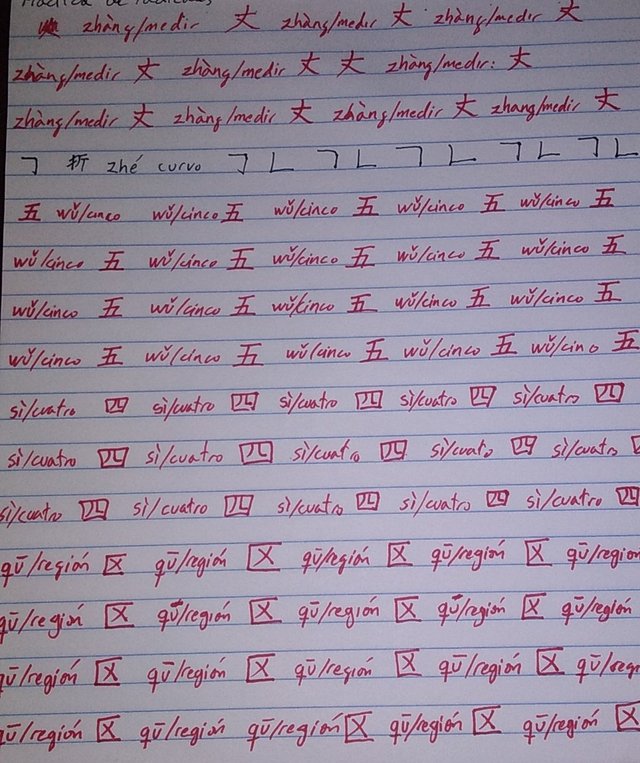 zhàng/medir 丈 zhàng/medir 丈 zhàng/medir 丈
zhàng/medir 丈 zhàng/medir 丈 丈 zhàng/medir: 丈
zhàng/medir 丈 zhàng/medir 丈 zhàng/medir 丈 zhang/medir 丈
㇕ 折 zhé curvo ㇕ ㇗ ㇕ ㇗ ㇕ ㇗ ㇕ ㇗ ㇕ ㇗
五 wǔ/cinco wǔ/cinco 五 wǔ/cinco 五 wǔ/cinco 五 wǔ/cinco 五
wǔ/cinco 五 wǔ/cinco 五 wǔ/cinco 五 wǔ/cinco 五 wǔ/cinco 五
wǔ/cinco 五 wǔ/cinco 五 wǔ/cinco 五 wǔ/cinco 五 wǔ/cinco 五
wǔ/cinco 五 wǔ/cinco 五 wǔ/cinco 五 wǔ/cinco 五 wǔ/cinco 五
sì/cuatro 四 sì/cuatro 四 sì/cuatro 四 sì/cuatro 四 sì/cuatro 四
sì/cuatro 四 sì/cuatro 四 sì/cuatro 四 sì/cuatro 四 sì/cuatro
sì/cuatro 四 sì/cuatro 四 sì/cuatro 四 sì/cuatro 四 sì/cuatro 四
qū/región 区 qū/región 区 qū/región 区 qū/región 区 qū/región
qū/región 区 qū/región 区 qū/región 区 qū/región 区 qū/región
qū/región 区 qū/región 区 qū/región 区 qū/región 区 qū/regi
qū/región 区 qū/región qū/región 区 qū/región 区 qū/región 区